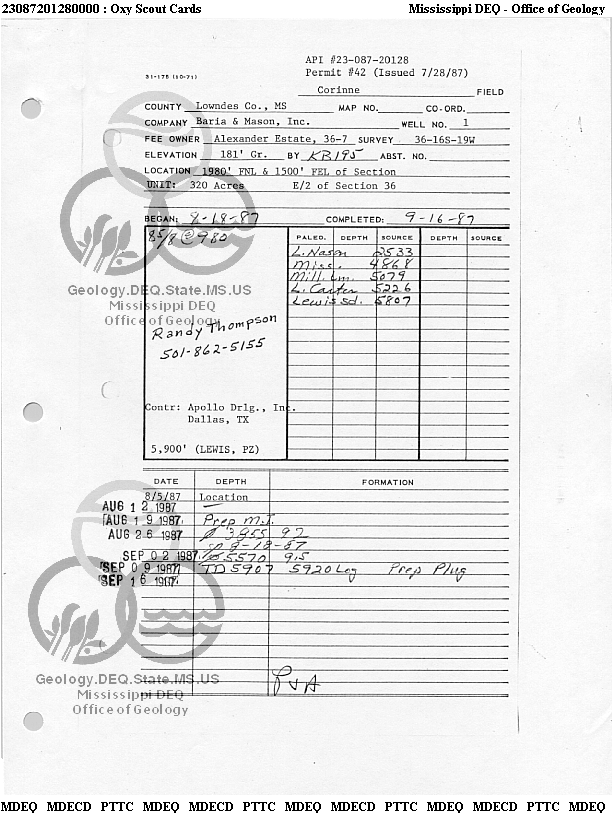 23087201280000 : Oxy Scout Cards Mississippi DEQ - Office of Geology
API #23-087-20128
31-175 (10-71) Permit #42 (Issued 7/28/87)
Corinne FIELD
COUNTY Lowndes Co., MS MAP NO. CO-ORD.
COMPANY Baria & Mason, Inc. WELL NO. 1
FEE OWNER Alexander Estate, 36-7 SURVEY 36-16S-19W
ELEVATION 181' Gr. BY KB195 ABST. NO.
LOCATION 1980' FNL & 1500' FEL of Section
UNIT: 320 Acres E/2 of Section 36
BEGAN: 8-18-87 COMPLETED: 9-16-87
8 5/8 @ 980
PALEO. DEPTH SOURCE DEPTH SOURCE
L. Nason 2533
Miss. 4868
Mill. Lm. 5079
L. Carter 5226
Lewis sd. 5807
Geology.DEQ.State.MS.US
Mississippi DEQ
Office of Geology
Randy Thompson
501-862-5155
Contr: Apollo Drlg., Inc.
Dallas, TX
5,900' (LEWIS, PZ)
DATE DEPTH FORMATION
8/5/87 Location
AUG 12 1987
AUG 19 1987 Prep M.I.
AUG 26 1987 3955 92
8-18-87
SEP 02 1987 5570 95
SEP 09 1987 TD 5907 5920 Log Prep Plug
SEP 16 1987
Geology.DEQ.State.MS.US
Mississippi DEQ
Office of Geology
P & A
MDEQ MDECD PTTC MDEQ MDECD PTTC MDEQ MDECD PTTC MDEQ MDECD PTTC MDEQ